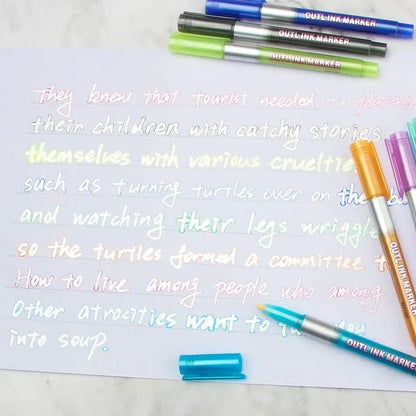 OUTLINK MARKER
OUTLINK MARKER
OUTLINK MARKER
They knew that tourist needed to
their children with catchy stories
themselves with various cruelties
such as turning turtles over on the
and watching their legs wriggle
so the turtles formed a committee
How to live among people who among
Other atrocities want to you
into soup.
OUTLINK MARKER
OUTLINK MARKER
OUTLINK MARKER